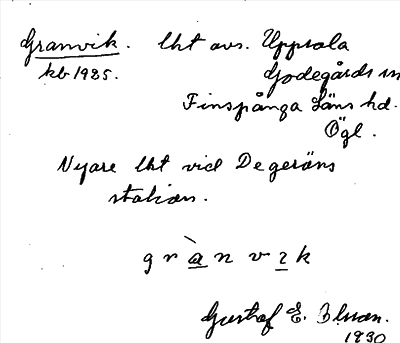 Granvik. lht avs. Uppsala
kb 1925. Godegårds sn
Finspånga Läns hd.
Ögl.
Nyare lht vid Degeröns
station.
g r à n v ı k
Gustaf E.
1930